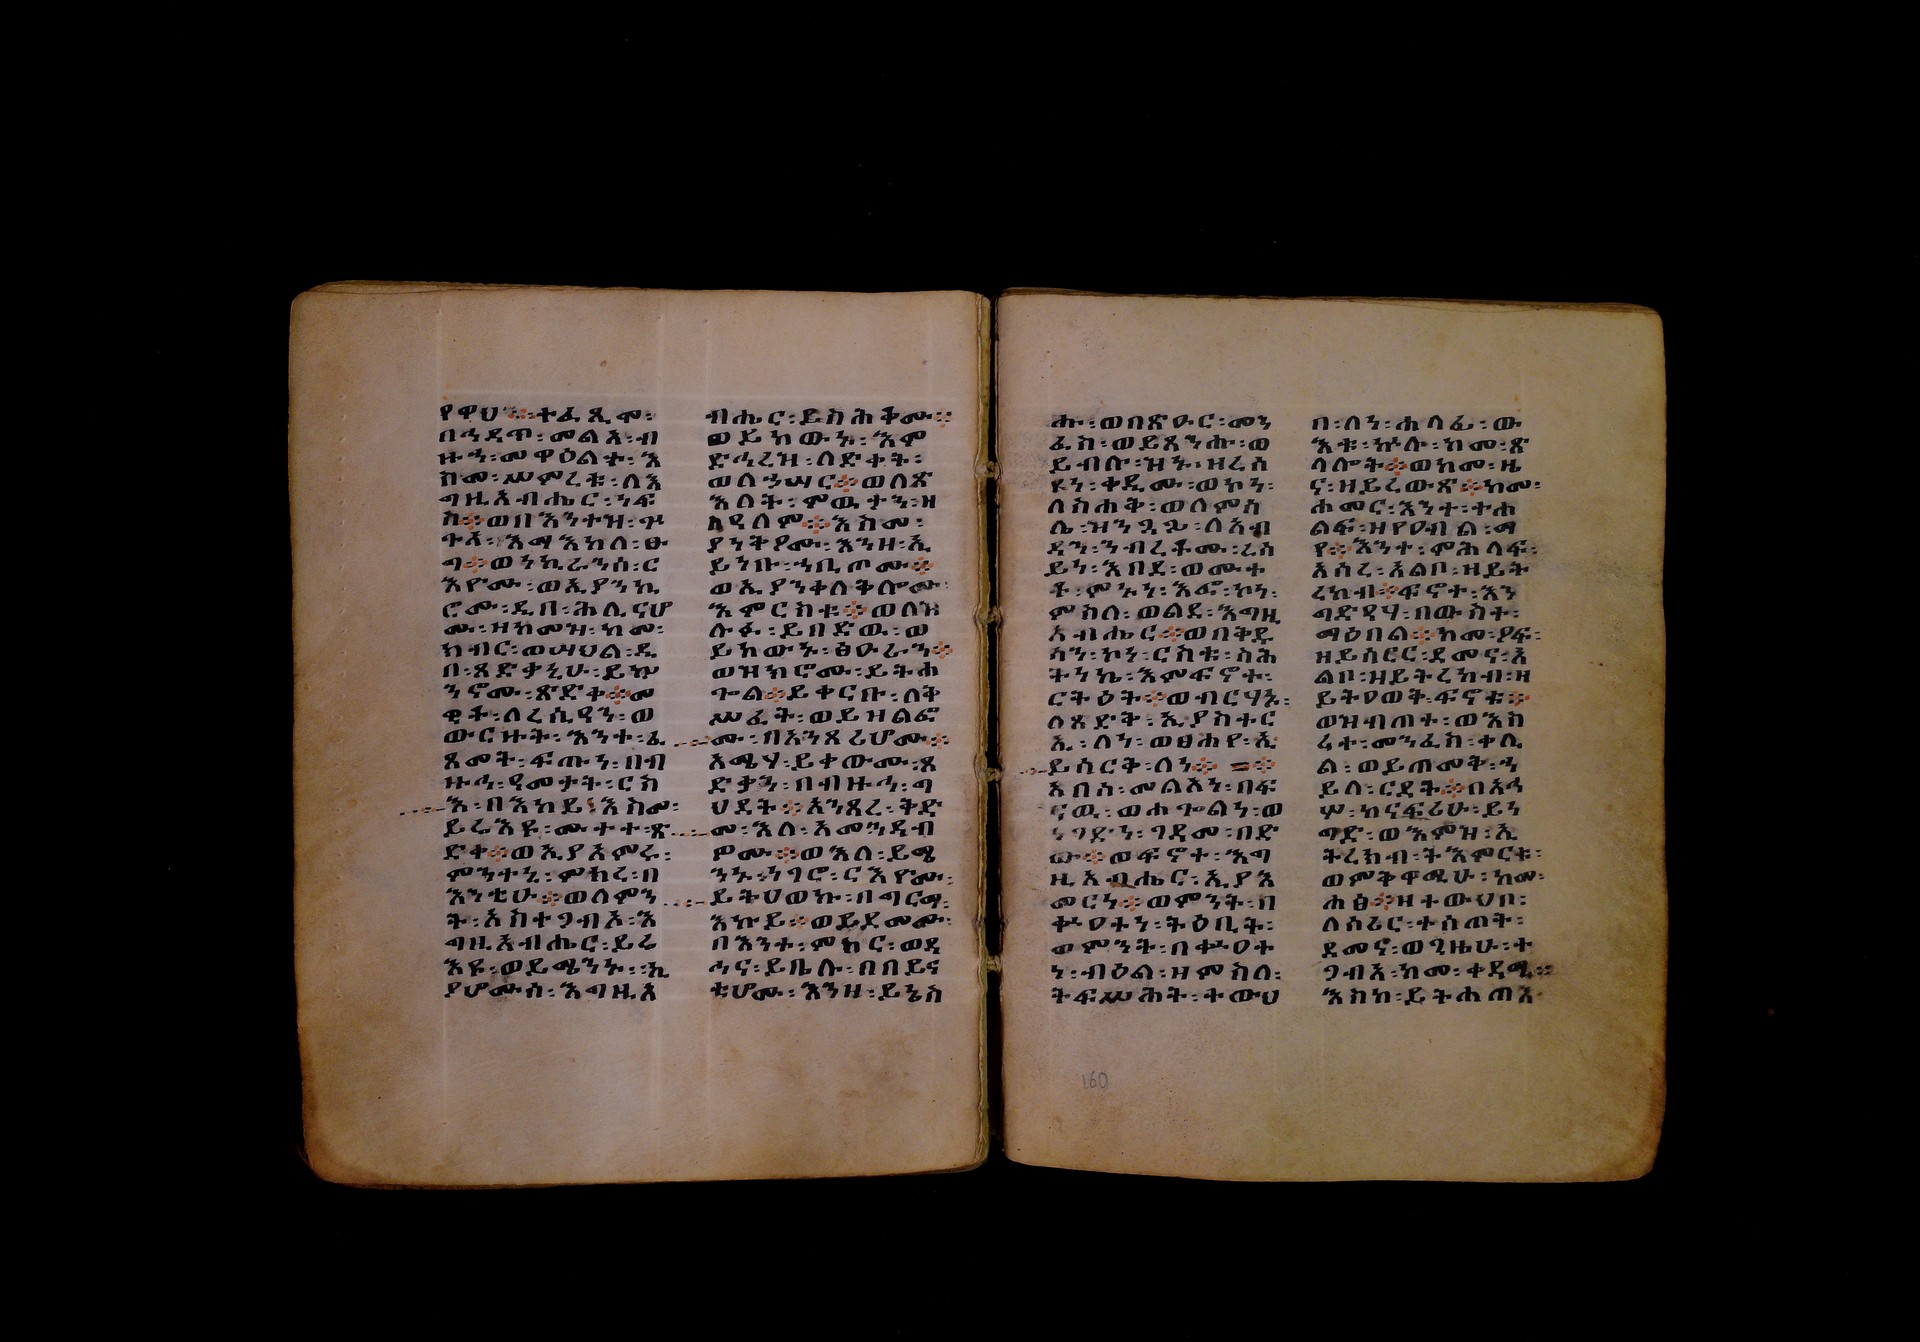 የዋህ፨ተፈጺሞ፡
በኅዳጥ፡መልአ፡ብ
ዙኀ፡መዋዕልተ፡እ
ስመ፡ሠምረቱ፡ለእ
ግዚአብሔር፡ነፍ
ሱ፨ወበእንተዝ፡
ጐጕአ፡እማእከለ፡
ወእያንኪ
ሙ፡ዘከመዝ፡ከመ፡
ክብር፡ወሣህል፡ዲ
በ፡ጻድቃኒሁ፡ይኴ
ንኖሙ፡ጻድቅ፨መ
ዊት፡ለረሲዓን፡ወ
ውርዙት፡እንተ፡ፈ
ጸመት፡ፍጡነ፡በብ
ዙኅ፡ዓመታት፡ርስ
እ፡በእከይ፡እስመ፡
ይሬእዩ፡ሙተተ፡ጻ
ድቅ፨ወኢያአምሩ፡
ምንተኒ፡ምክረ፡በ
እንቲሁ፨ወለምን
ት፡አስተጋብአ፡እ
ግዚአብሔር፡ይሬ
እዩ፡ወይሜንኑ፡ኢ
ያሆሙሰ፡እግዚአ
ብሔር፡ይስሕቆሙ፨
ወይከውኑ፡እም
ድኅረዝ፡ለድቀት፡
ወለኀሣር፨ወለጽ
እለት፡ምዉታን፡ዘ
ለዓለም፨እስመ፡
ያነትዖሙ፡እንዘ፡ኢ
ይነቡ፡ኀቢጦሙ፨
ወኢያንቀለቅሎሙ፡
እምርክቱ፨ወለዝ
ሉፉ፡ይበድዉ፡ወ
ይከውኑ፡ፅዑራን፨
ወዝክሮሙ፡ይትሐ
ጐል፨ይቀርቡ፡ለቅ
ሥፈት፡ወይዝልፎ
ሙ፡በአንጻሪሆሙ፨
አሜሃ፡ይቀውሙ፡ጻ
ድቃን፡በብዙኅ፡ግ
ህደት፨አንጻረ፡ቅድ
መ፡እለ፡አመንደብ
ዎሙ፨ወእለ፡ይሜ
ንኑ፡ነገሮ፡ርእዮሙ፡
ይትሀወኩ፡በግርማ፡
እኩይ፨ወይደመሙ፡
በእንተ፡ምክር፡ወዲ
ኅና፡ይቤሉ፡በበይና
ቲሆሙ፡እንዘ፡ይኔስ
ሑ፡ወበጽዑር፡መን
ፈስ፡ወይጸንሑ፡ወ
ይብሉ፡ዝኑ፡ዘረሰ
ይነ፡ቀዲሙ፡ወኮነ፡
ለስሐቅ፡ወለምስ
ሌ፡ዝንጓጔ፡ለአብ
ዳን፡ንብረቶሙ፡ረሰ
ይነ፡እበደ፡ወሙተ
ቶ፡ምኑነ፡እፎ፡ኮነ፡
ምስለ፡ወልደ፡እግዚ
አብሔር፨ወበቅዱ
ሳን፡ኮነ፡ርስቱ፡ስሕ
ትነኬ፡እምፍኖተ፡
ርትዕት፨ወብርሃኑ፡
ለጽድቅ፡ኢያስተር
አየ፡ለነ፡ወፀሐየ፡ኢ
ይሰርቅ፡ለነ፨
አበሰ፡መልአነ፡በፍ
ናዊ፡ወሐጐልነ፡ወ
ነገድነ፡ገዳመ፡በድ
ው፨ወፍኖተ፡እግ
ዚአብሔር፡ኢያእ
መርነ፨ወምንት፡በ
ቍዐተነ፡ትዕቢት፡
ወምንት፡በቍዐተ
ነ፡ብዕል፡ዘምስለ፡
ትፍሥሕት፡ተውህ
በ፡ለነ፡ሐላፊ፡ው
እቱ፡ኵሉ፡ከመ፡ጽ
ላሎት፨ወከመ፡ዜ
ና፡ዘይረውጽ፨ከመ፡
ሐመር፡እንተ፡ተሐ
ልፍ፡ዘየዐብል፡ማ
የ፨እንተ፡ምሕላፍ፡
አሰረ፡አልቦ፡ዘይት
ረከብ፨ፍኖተ፡እን
ግድዓሃ፡በውስት፡
ማዕበል፨ከመ፡ዖፍ፡
ዘይሰርር፡ደመና፡አ
ልቦ፡ዘይትረከብ፡ዘ
ይትዐወቅ፡ፍኖቱ፨
ወዝብጠተ፡ወእከ
ሪተ፡መንፈስ፡ቀሊ
ል፡ወይጠመቅ፡ኀ
ይለ፡ርደት፨በአኅ
ሦ፡ክናፍሪሁ፡ይነ
ግድ፡ወእምዝ፡ኢ
ትረክብ፡ትእምርቱ፡
ወምቅዋሚሁ፡ከመ፡
ሐፅ፨ዘተውህበ፡
ለሰሪር፡ተሰጠት፡
ደመና፡ወጊዜሁ፡ተ
ጋብአ፡ከመ፡ቀዳሚ፨
እስከ፡ይትሐጠእ፡
160